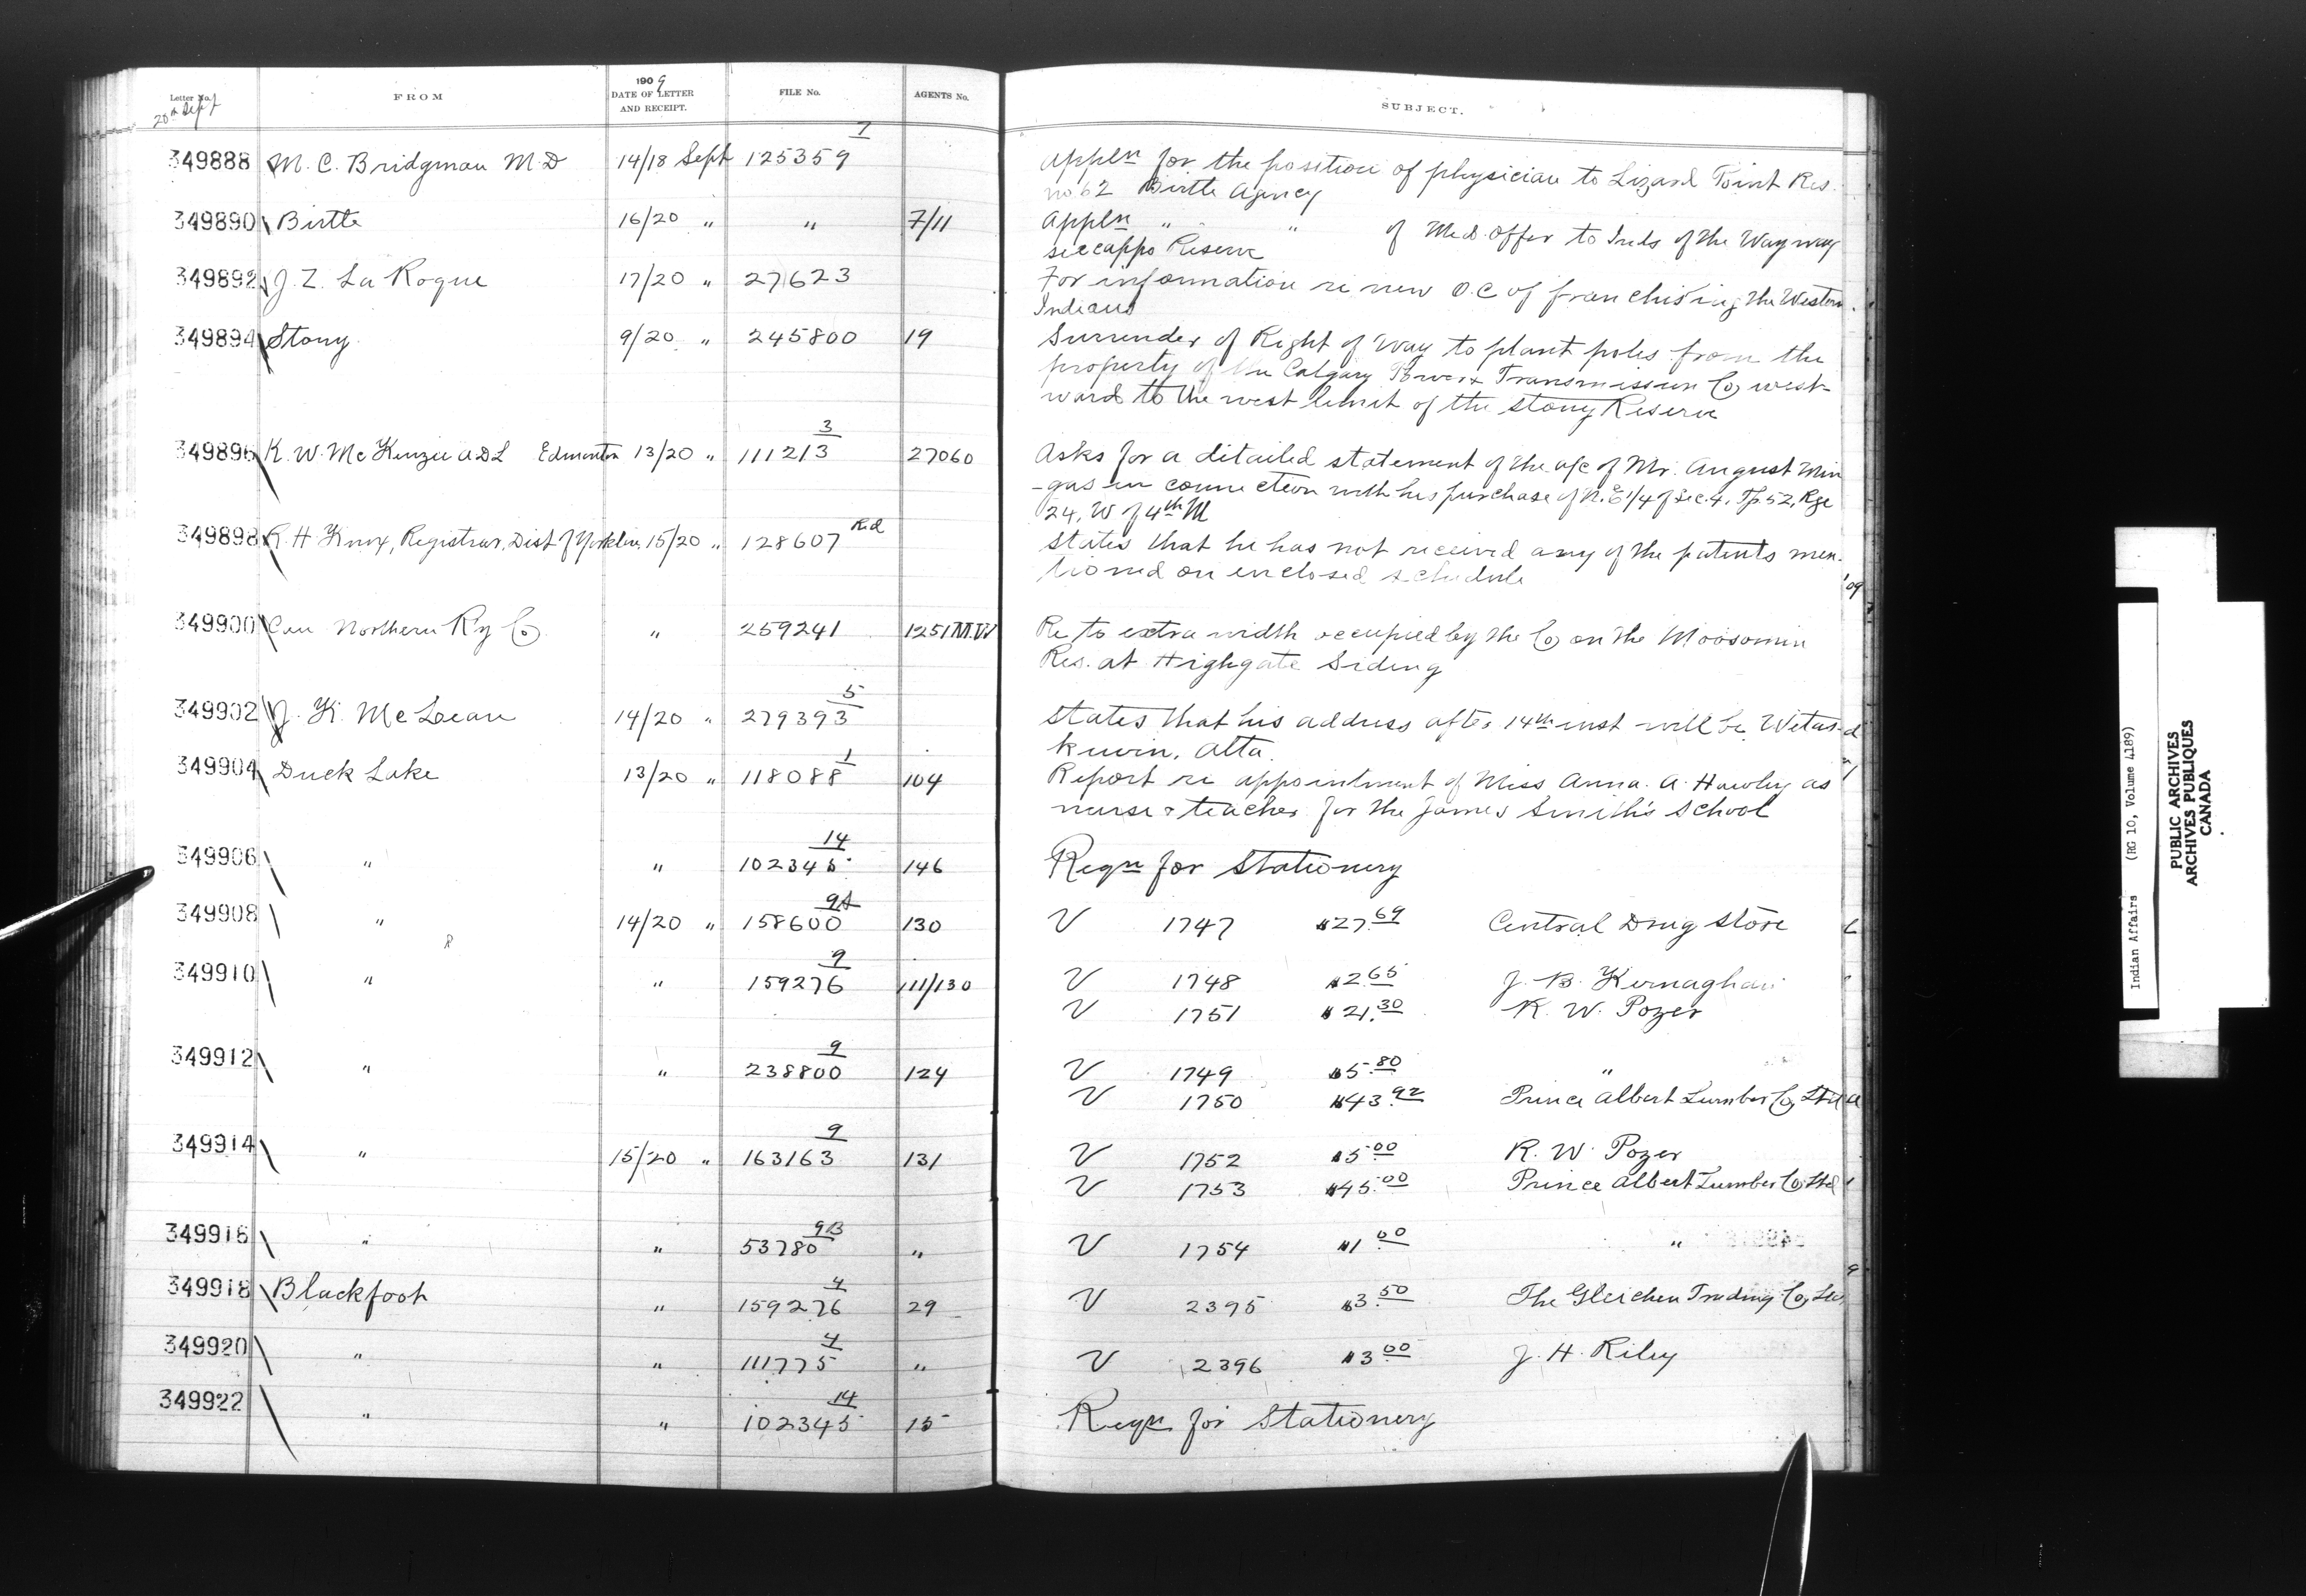 Letter No. FROM 1909 DATE OF LETTER AND RECEIPT. FILE No. AGENTS No. SUBJECT.
20th Sept
349888 M. C. Bridgman M.D 14/18 Sept 125359 7 Appln for the position of physician to Lizard Point Res.
no 62 Birtle Agency
349890 Birtle 16/20 " " 7/11 Appln " " of Med. Offer to Inds of the Wayway
seecappo Reserve
349892 J. Z. La Rogue 17/20 " 27623 For information re new O.C of franchising the Western
Indians
349894 Stony 9/20 " 245800 19 Surrender of Right of Way to plant poles from the
property of the Calgary Power & Transmission Co west-
ward to the west limit of the Stony Reserve
349896 K. W. McKenzie ADL Edmonton 13/20 " 111213 3 27060 Asks for a detailed statement of the a/c of Mr. August Min
-gas in connection with his purchase of N.E 1/4 of Sec. 4, Tp. 52, Rge
24, W of 4th M
349898 R. H Knox, Registrar, Dist of Yorkton 15/20 " 128607 Rd States that he has not received any of the patents men-
tioned on enclosed schedule
349900 Can Northern Ry Co " 259241 1251 M.W Re to extra width occupied by the Co on the Moosomin
Res. at Highgate Siding
349902 J. K. McLean 14/20 " 279393 5 States that his address after 14th inst will be Wetas-
kiwin, Alta.
349904 Duck Lake 13/20 " 118088 1 104 Report re appointment of Miss Anna. A. Hawley as
nurse & teacher for the James Smith's School
349906 " " 102345 14 146 Reqn for Stationery
349908 " 14/20 " 158600 9A 130 V 1747 $27.69 Central Drug Store
349910 " " 159276 9 111/130 V 1748 $2.65 J. B. Kernaghan
V 1751 $21.30 R. W. Pozer
349912 " " 238800 9 124 V 1749 $5.80 "
V 1750 $43.92 Prince Albert Lumber Co, Ltd
349914 " 15/20 " 163163 9 131 V 1752 $5.00 R. W. Pozer
V 1753 $45.00 Prince Albert Lumber Co, Ltd
349916 " " 53780 9B " V 1754 $1.00 "
349918 Blackfoot " 159276 4 29 V 2395 $3.50 The Gleichen Trading Co, Ltd
349920 " " 111775 4 " V 2396 $3.00 J. H. Riley
349922 " " 102345 14 15 Reqn for Stationery
'09
Indian Affairs (RG 10, Volume 4189)
PUBLIC ARCHIVES
ARCHIVES PUBLIQUES
CANADA